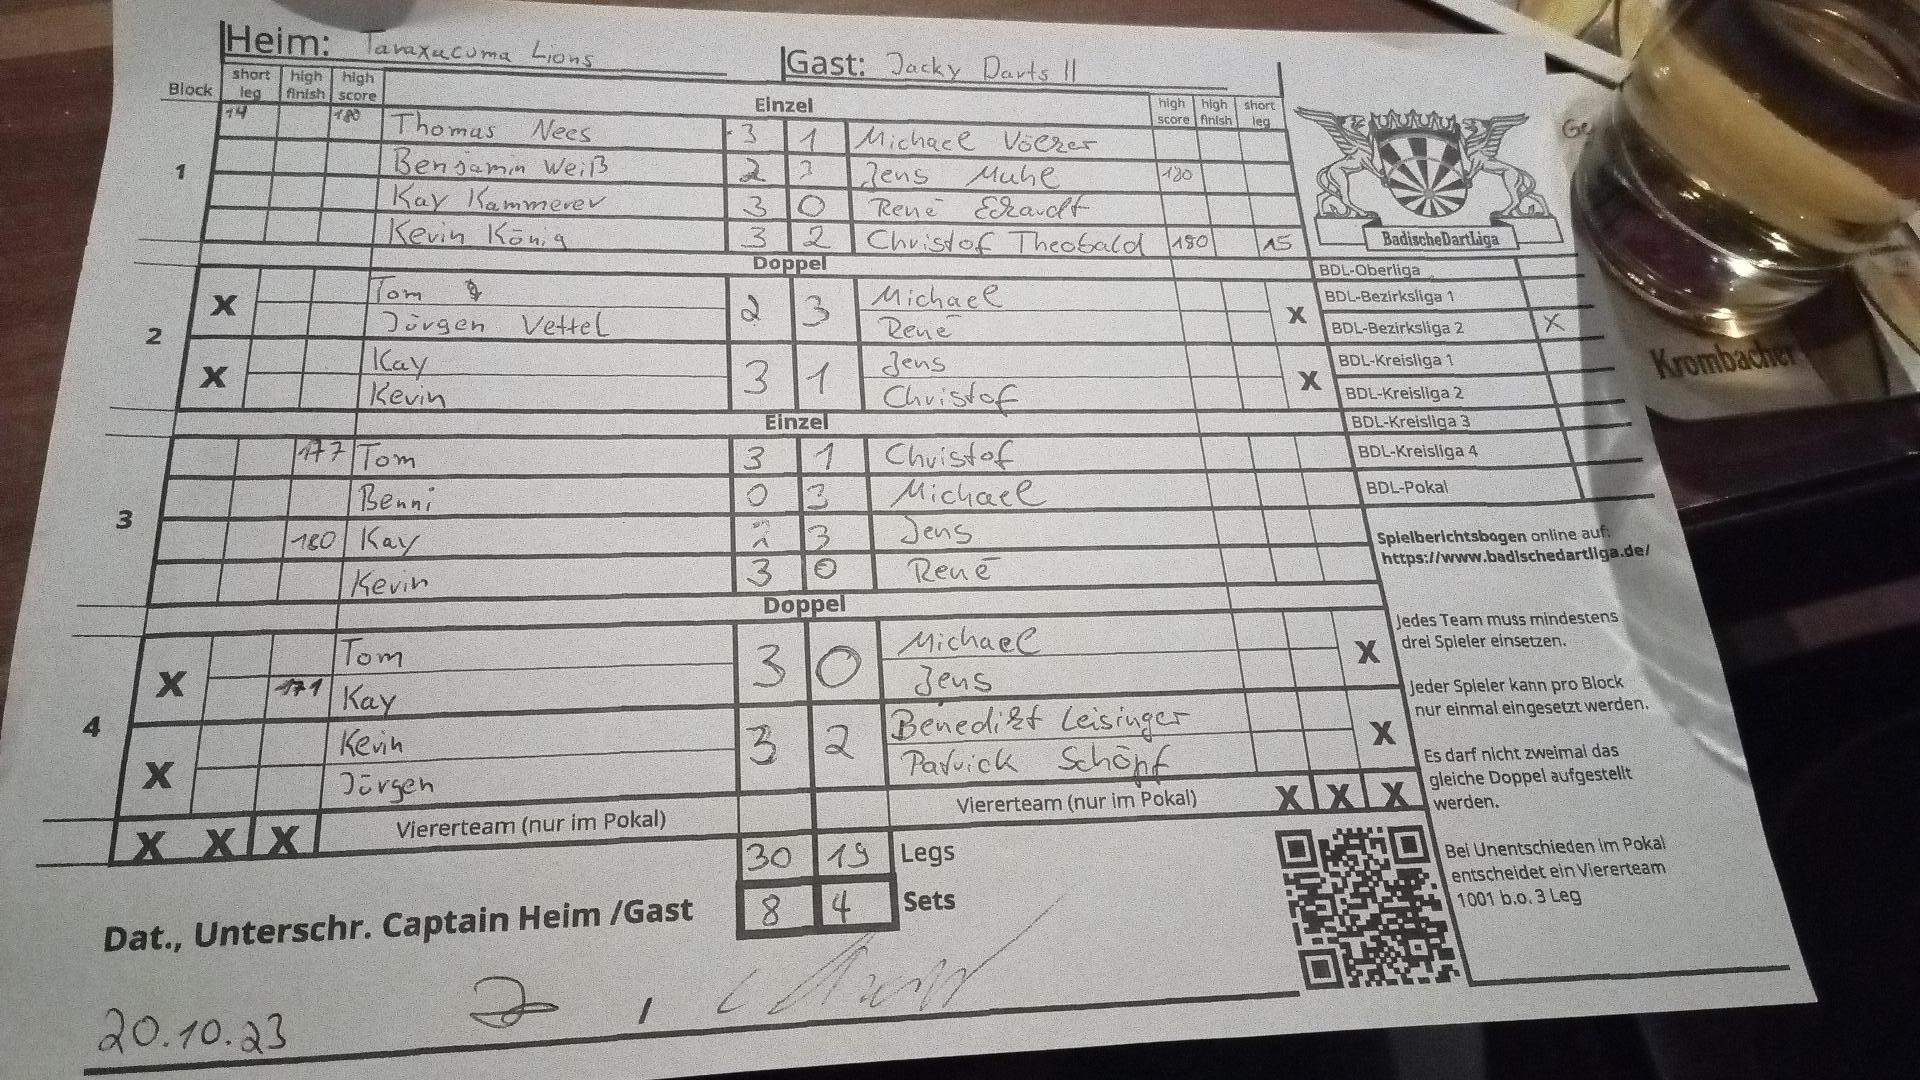 Heim: Taraxacuma Lions Gast: Jacky Darts II
Block short leg high finish high score Einzel high score high finish short leg
1
14 180 Thomas Nees 3 1 Michael Völker
Benjamin Weiß 2 3 Jens Muhl 180
Kay Kammerer 3 0 René Eckardt
Kevin König 3 2 Christof Theobald 180 15
Doppel
2
X Tom 2 3 Michael X
Jürgen Vettel René
X Kay 3 1 Jens X
Kevin Christof
Einzel
3
177 Tom 3 1 Christof
Benni 0 3 Michael
180 Kay 3 Jens
Kevin 3 0 René
Doppel
4
X Tom 3 0 Michael X
171 Kay Jens
X Kevin 3 2 Benedikt Leisinger X
Jürgen Patrick Schöpf
X X X Viererteam (nur im Pokal) Viererteam (nur im Pokal) X X X
30 19 Legs
8 4 Sets
Dat., Unterschr. Captain Heim /Gast
20.10.23
BadischeDartLiga
BDL-Oberliga
BDL-Bezirksliga 1
BDL-Bezirksliga 2 X
BDL-Kreisliga 1
BDL-Kreisliga 2
BDL-Kreisliga 3
BDL-Kreisliga 4
BDL-Pokal
Spielberichtsbogen online auf:
https://www.badischedartliga.de/
Jedes Team muss mindestens
drei Spieler einsetzen.
Jeder Spieler kann pro Block
nur einmal eingesetzt werden.
Es darf nicht zweimal das
gleiche Doppel aufgestellt
werden.
Bei Unentschieden im Pokal
entscheidet ein Viererteam
1001 b.o. 3 Leg
Krombacher